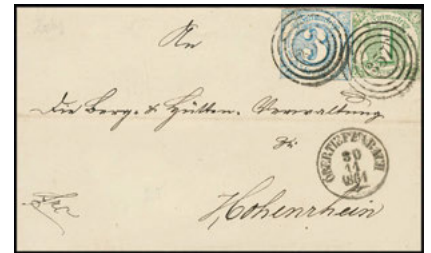 An
3 1
Die Berg- & Hütten-Verwaltung
zu
OBERTIEFENBACH
30
11
1861
Hohenrhein